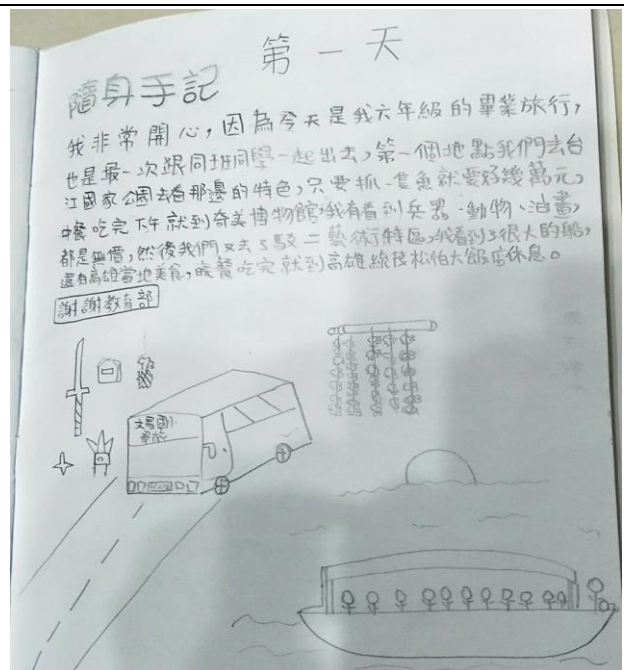 第一天
隨身手記
我非常開心，因為今天是我六年級的畢業旅行，
也是最一次跟同班同學一起出去，第一個地點我們去台
江國家公園去看那邊的特色，只要抓一隻魚就要好幾萬元，
餐吃完下午就到奇美博物館，我有看到兵器、動物、油畫，
都是無價，然後我們又去了駁二藝術特區，我看到了很大的船，
還有高雄當地美食，晚餐吃完就到高雄統茂松怕大飯店休息。
謝謝教育部
文昌國小
畢旅